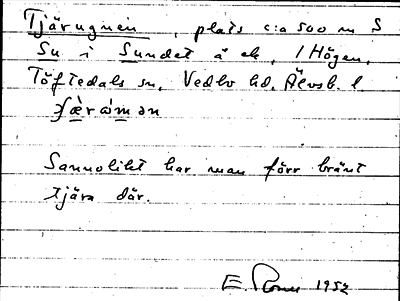 Tjärugnen, plats c:a 500 m S
Su i Sundet å ek, 1 Högen,
Töftedals sn, Vedbo hd. Älvsb. l.
Sannolikt har man förr bränt
tjära där.
E. 1952